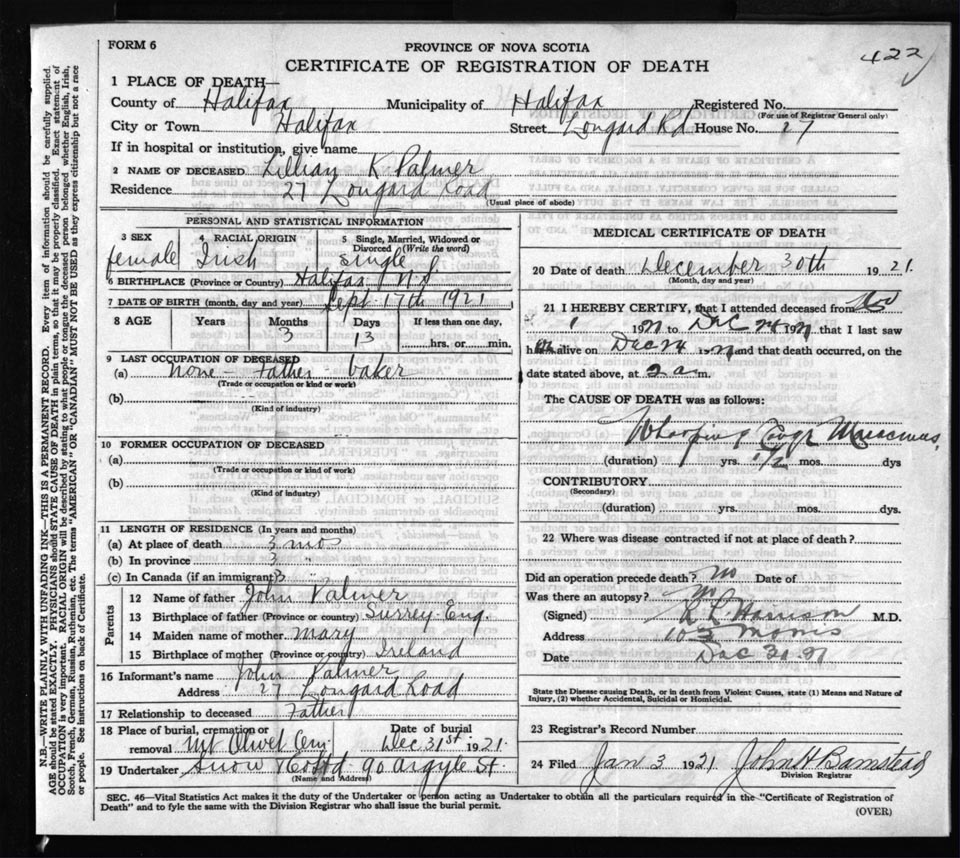 FORM 6
PROVINCE OF NOVA SCOTIA
422
CERTIFICATE OF REGISTRATION OF DEATH
1 PLACE OF DEATH—
County of Halifax Municipality of Halifax Registered No.
(For use of Registrar General only)
City or Town Halifax Street Longard Rd. House No. 27
If in hospital or institution, give name
2 NAME OF DECEASED Lillian K. Palmer
Residence 27 Longard Road
(Usual place of abode)
PERSONAL AND STATISTICAL INFORMATION
3 SEX female
4 RACIAL ORIGIN Irish
5 Single, Married, Widowed or Divorced (Write the word) single
6 BIRTHPLACE (Province or Country) Halifax N S
7 DATE OF BIRTH (month, day and year) Sept. 17th 1921
8 AGE Years Months Days If less than one day,
3 13 hrs. or min.
9 LAST OCCUPATION OF DECEASED
(a) none - Father - baker
(Trade or occupation or kind or work)
(b)
(Kind of industry)
10 FORMER OCCUPATION OF DECEASED
(a)
(Trade or occupation or kind of work)
(b)
(Kind of industry)
11 LENGTH OF RESIDENCE (In years and months)
(a) At place of death 3 mos
(b) In province 3 "
(c) In Canada (if an immigrant) 3 "
Parents
12 Name of father John Palmer
13 Birthplace of father (Province or country) Surrey Eng.
14 Maiden name of mother Mary
15 Birthplace of mother (Province or country) Ireland
16 Informant's name John Palmer
Address 27 Longard Road
17 Relationship to deceased Father
18 Place of burial, cremation or removal Mt Olivet Cem Date of burial Dec 31st 1921.
19 Undertaker Snow & Co Ltd 90 Argyle St.
(Name and address)
MEDICAL CERTIFICATE OF DEATH
20 Date of death December 30th 1921.
(Month, day and year)
21 I HEREBY CERTIFY, that I attended deceased from Nov
1 1921 to Dec 24 1921 that I last saw
h alive on Dec 24 1921 and that death occurred, on the
date stated above, at 2 a m.
The CAUSE OF DEATH was as follows:
Whooping Cough
(duration) yrs. 1/2 mos. dys
CONTRIBUTORY
(Secondary)
(duration) yrs. mos. dys.
22 Where was disease contracted if not at place of death?
Did an operation precede death? no Date of
Was there an autopsy? no
(Signed) M.D.
Address 103 Morris
Date Dec 31 21
State the Disease causing Death, or in death from Violent Causes, state (1) Means and Nature of
Injury, (2) whether Accidental, Suicidal or Homicidal.
23 Registrar's Record Number
24 Filed Jan 3 1921 John H Barnstead
Division Registrar
SEC. 46—Vital Statistics Act makes it the duty of the Undertaker or person acting as Undertaker to obtain all the particulars required in the "Certificate of Registration of
Death" and to fyle the same with the Division Registrar who shall issue the burial permit.
(OVER)
N.B.—WRITE PLAINLY WITH UNFADING INK—THIS IS A PERMANENT RECORD. Every item of information should be carefully supplied.
AGE should be stated EXACTLY. PHYSICIANS should STATE CAUSE OF DEATH in plain terms, so that it may be properly classified. Exact statement of
OCCUPATION is very important. RACIAL ORIGIN will be described by stating to what people or tongue the deceased person belonged whether English, Irish,
Scotch, French, German, Russian, Ruthenian, etc. The terms "AMERICAN" or "CANADIAN" MUST NOT BE USED as they express citizenship but not a race
or people. See instructions on back of Certificate.